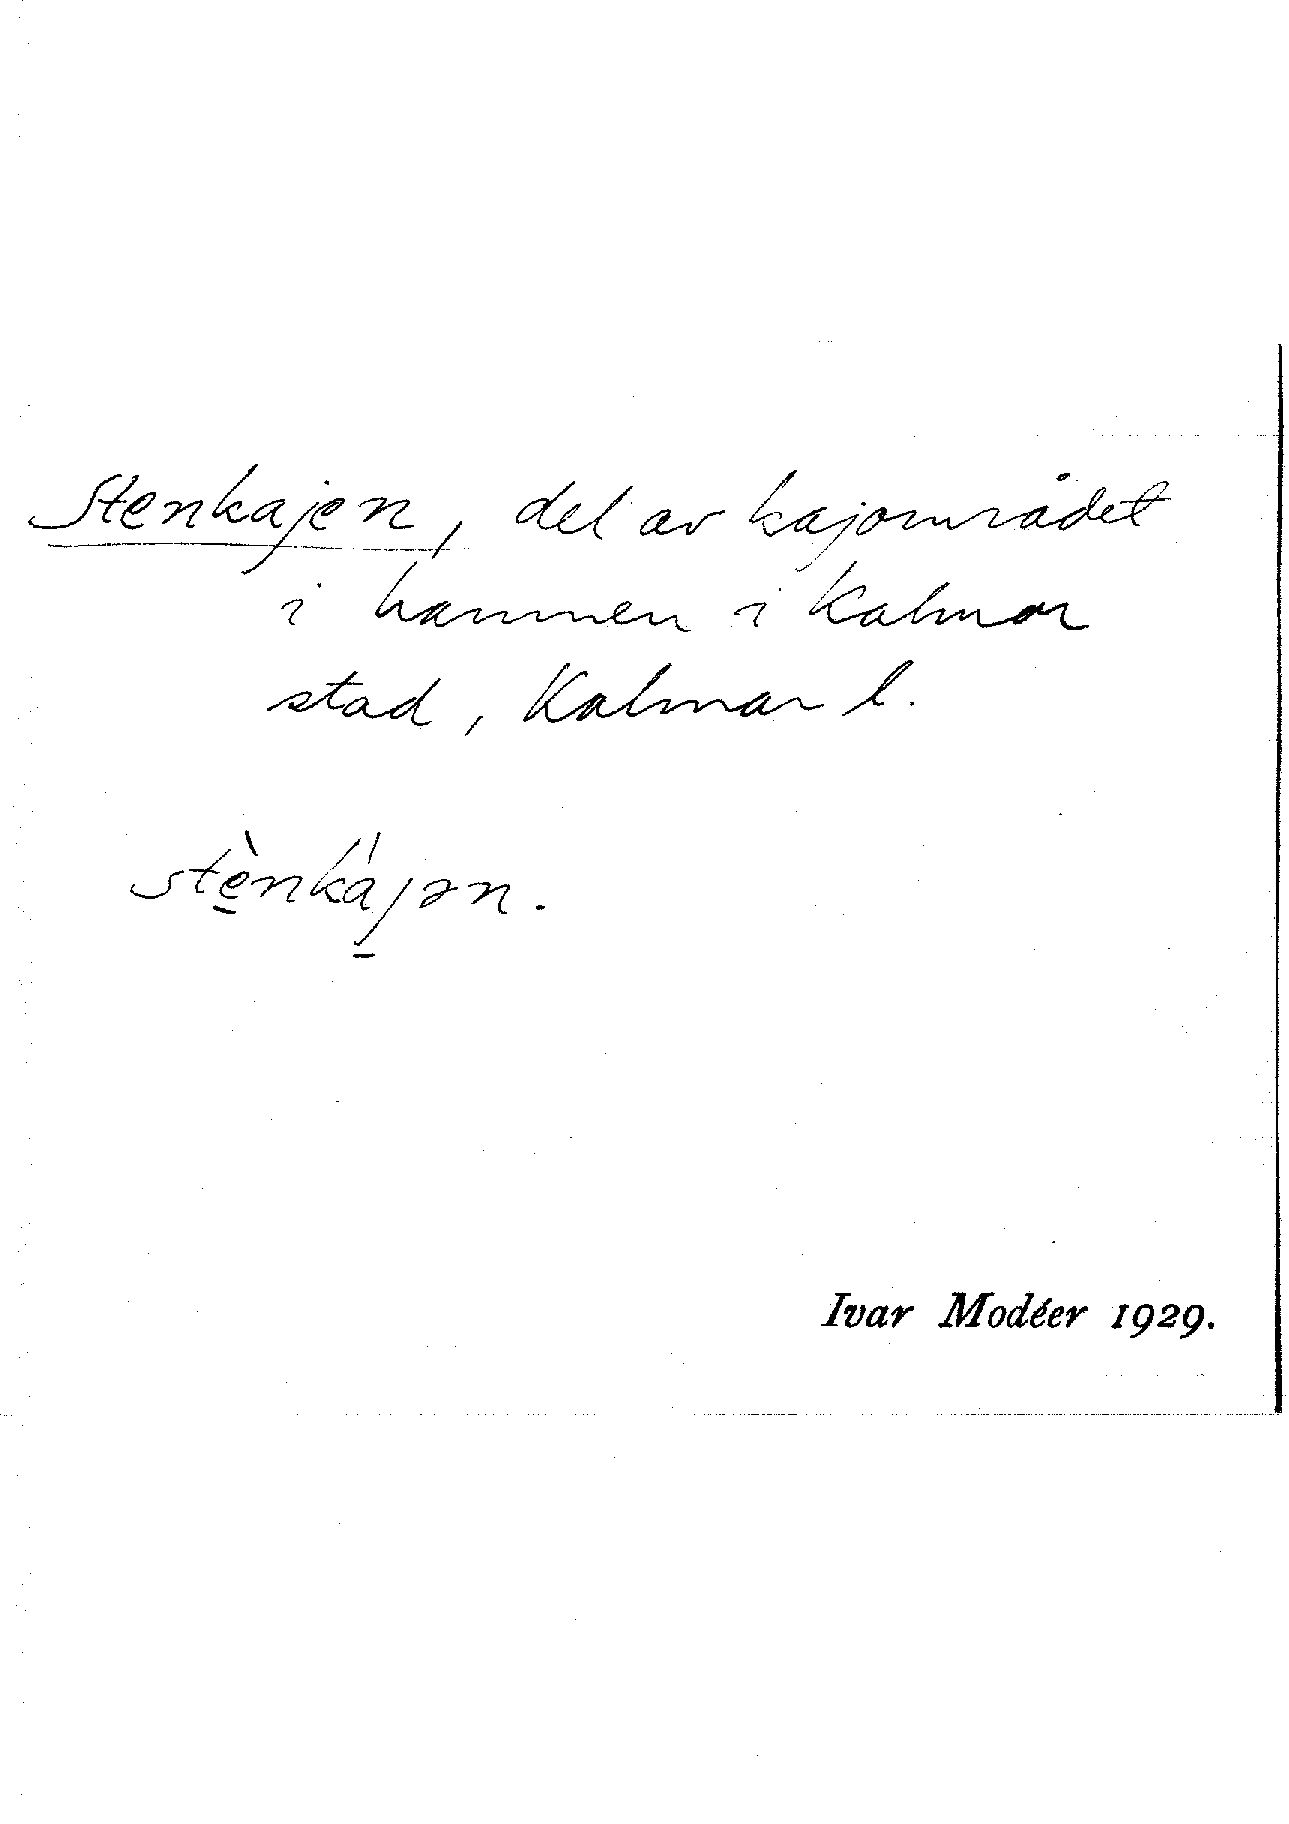 Stenkajen, del av kajområdet
i hamnen i Kalmar
stad, Kalmar l.
stè̠nkáj̠ən.
Ivar Modéer 1929.